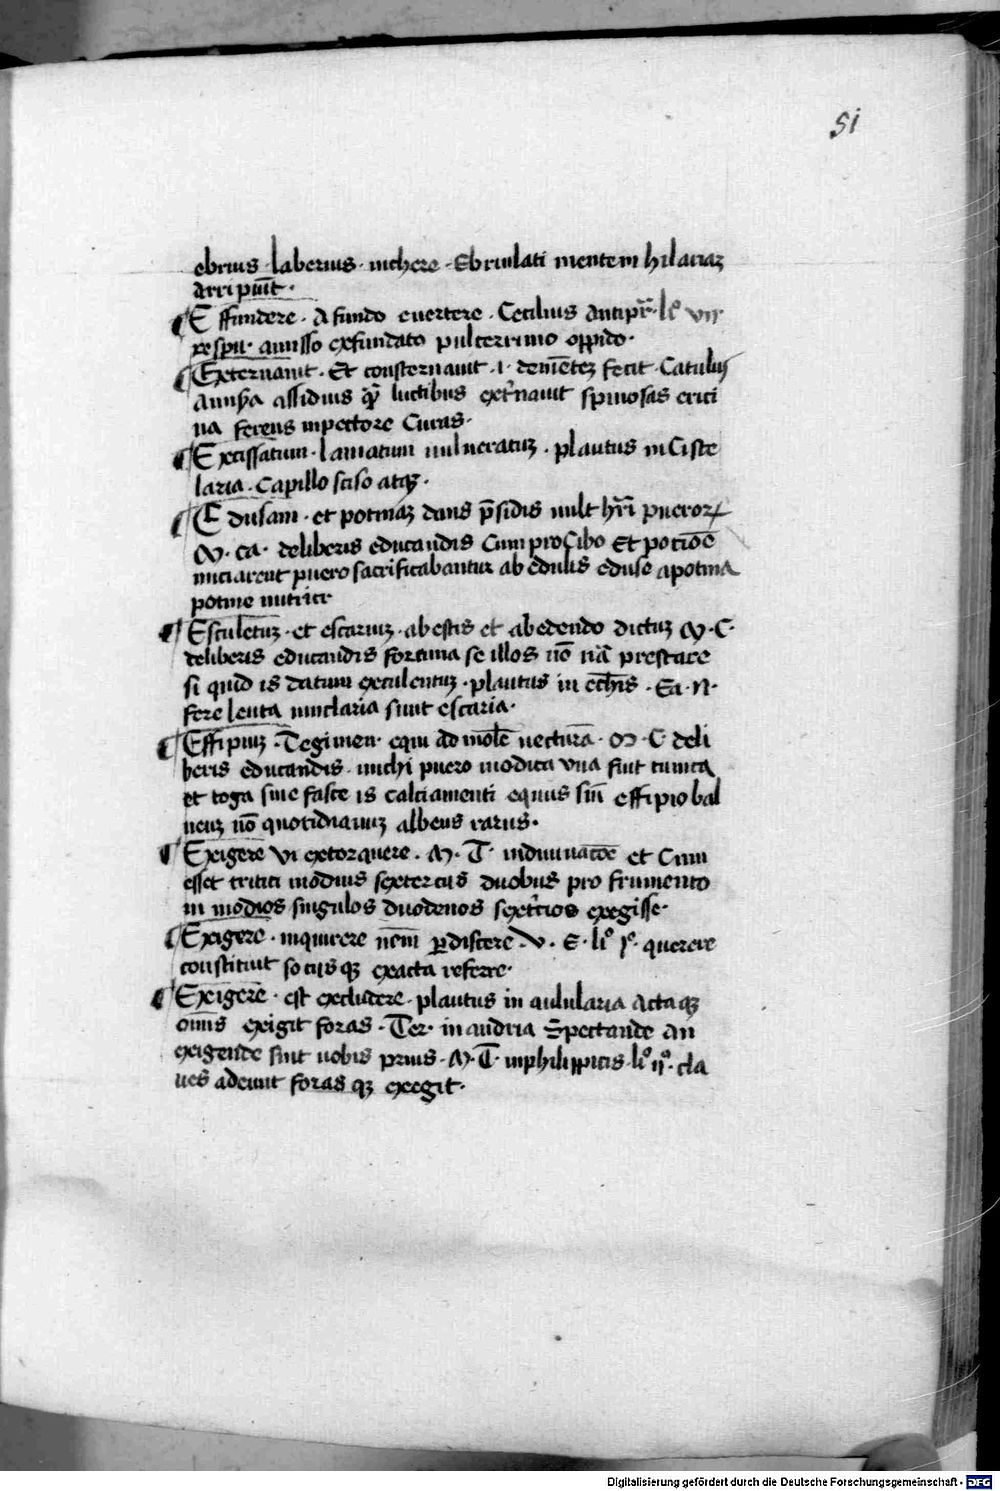 51
ebrius · laberius · inchere · Ebriulati mentem hilariaꝫ
arripiūt ·
¶ Effundere · A fundo evertere · Cecilius Antipr̄r · lo vij
respu · amisso exfundato pulcerrimo oppido ·
¶ Externauit · Et consternauit · i · demētēꝫ fecit · Catulus
assidius q̄ȝ luctibus ext'nauit spinosas erici
na ferens in pectore Curas ·
¶ Excissatum · laniatum uulneratuꝫ · plautus in Ciste
laria · Capillo sciso atqꝫ ·
¶ Edusam · et potinaꝫ deas p̄sidis uult hr̄i pueroꝝ
M · ca · deliberis educandis Cum pro Cibo Et potiōē
iniciarent puero sacrificabantur ab edulis eduse a potina
potine nutrice
¶ Esculētuꝫ · et escariuꝫ · ab estis et ab edendo dictuꝫ M · C ·
deliberis educandis fortuna se illos nō nā prestare
si quid is datum exculentuꝫ · plautus in ech̄is · Ea · N ·
fere lenta uinclaria sunt escaria ·
¶ Effipiuꝫ · Tegimen · equi ad mōlē uecturā · M · C deli
beris educandis · michi puero modica vna fuit tunica
et toga sine fasce is calciamenti equus siñ effipio bal
neuꝫ nō quotidianuꝫ albeus rarus ·
¶ Exigere vi extorquere · M · T · et Cum
esset tritici modius sextercus duobus pro frumento
in modios singulos duodenos sext'cios exegisse ·
¶ Exigere · inquirere ꝑdiscere · V · E · lio io · querere
constituit sociisqꝫ exacta referre ·
¶ Exigere · est excludere · plautus in aulularia Actaqꝫ
omīs exigit foras · Ter · in andria Spectande an
exigende sint uobis prius · M · T · in philippicis · lo ijo · cla
ues ademit forasqꝫ exegit ·
Digitalisierung gefördert durch die Deutsche Forschungsgemeinschaft - DFG